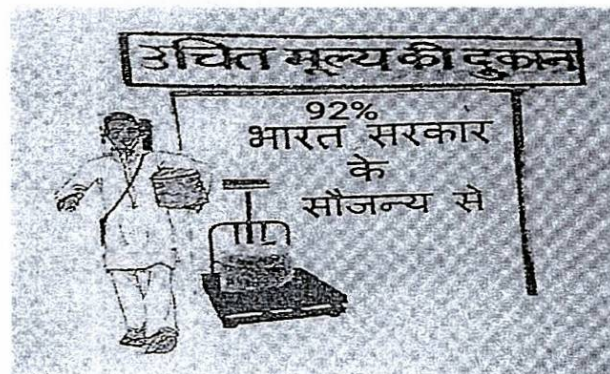 उचित मूल्य की दुकान
92%
भारत सरकार
के
सौजन्य से